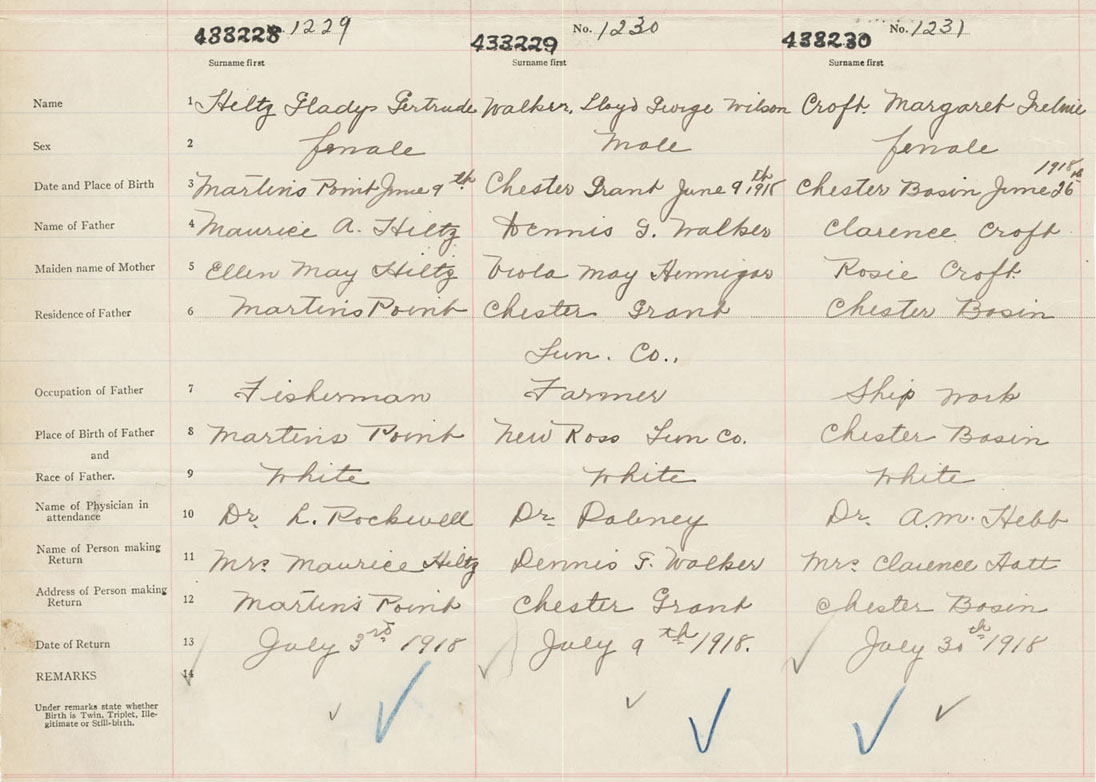 438228 No. 1229 433229 No. 1230 438230 No. 1231
Surname first Surname first Surname first
Name 1 Hiltz Gladys Gertrude Walker, Lloyd George Wilson Croft. Margaret
Sex 2 female Male female
1918
Date and Place of Birth 3 Martins Point June 9th Chester Grant June 9th 1918 Chester Basin June 26th
Name of Father 4 Maurice A. Hiltz Dennis G. Walker Clarence Croft
Maiden name of Mother 5 Ellen May Hiltz Viola May Hennigar Rosie Croft
Residence of Father 6 Martins Point Chester Grant Chester Basin
Lun. Co.,
Occupation of Father 7 Fisherman Farmer Ship work
Place of Birth of Father 8 Martins Point New Ross Lun Co. Chester Basin
and
Race of Father. 9 White White White
Name of Physician in
attendance 10 Dr. L. Rockwell Dr. Dr. A.M. Hebb
Name of Person making
Return 11 Mrs. Maurice Hiltz Dennis F. Walker Mrs. Clarence Hatt
Address of Person making
Return 12 Martins Point Chester Grant Chester Basin
Date of Return 13 July 3rd 1918 July 9th 1918. July 30th 1918
REMARKS 14
Under remarks state whether
Birth is Twin, Triplet, Ille-
gitimate or Still-birth.